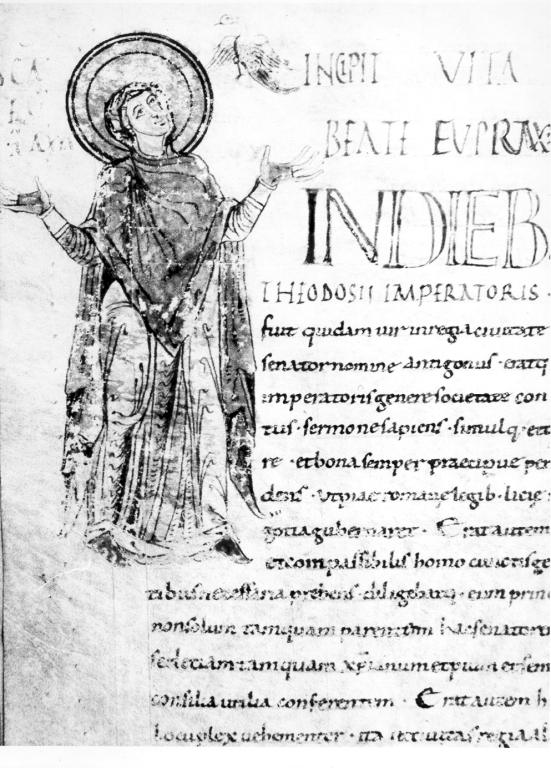 INCIPIT VITA
BEATE EUPRAX
INDIEB
THEODOSII IMPERATORIS ·
fuit quidam uir inregia ciuitate
senator nomine antigonus · eratq
imperatoris genere societate con
tus · sermone sapiens · simulq · ett
re · et bona semper praecipue per
dens · utpiae romane legib · licie
gubernaret · Erat autem
et compassibilis homo cunctisqe
tribus necessaria prebens · diligebatq · eum prin
non solum tamquam parentem hac senatorem
sed etiam tamquam xpianum et pium et sem
consilia utilia conferentem · Erat autem h
locuplex uehementer · ita ut ciuitas regia al